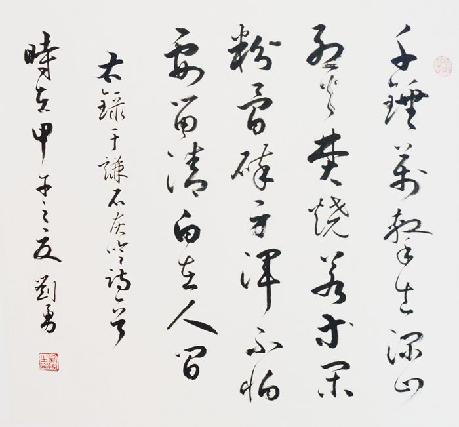 千錘萬擊出深山
烈火焚燒若等閑
粉骨碎身渾不怕
要留清白在人間
右錄于謙石灰吟詩一首
時在甲午之夏 劉勇